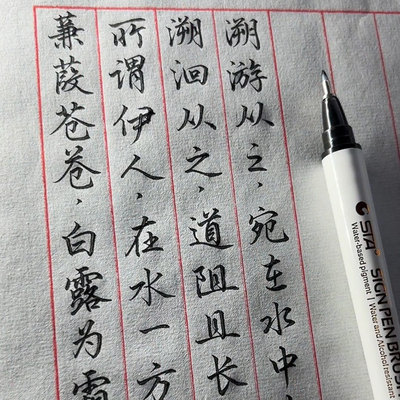 蒹葭苍苍，白露为霜
所谓伊人，在水一方
溯洄从之，道阻且长
溯游从之，宛在水中
STA SIGN PEN BRUSH
Water-based pigment | Water and Alcohol resistant